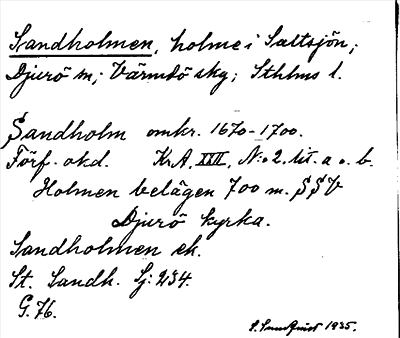 Sandholmen, holme i Saltsjön,
Djurö sn; Värmdö skg; Sthlms l.
Sandholm omkr. 1670-1700.
Förf. okd. KrA, XXII, N:o 2. lit. a o. b.
Holmen belägen 700 m. SSV
Djurö kyrka.
Sandholmen ek.
St. Sandh. Sj: 234.
G. 76.
S. Sundquist 1935.